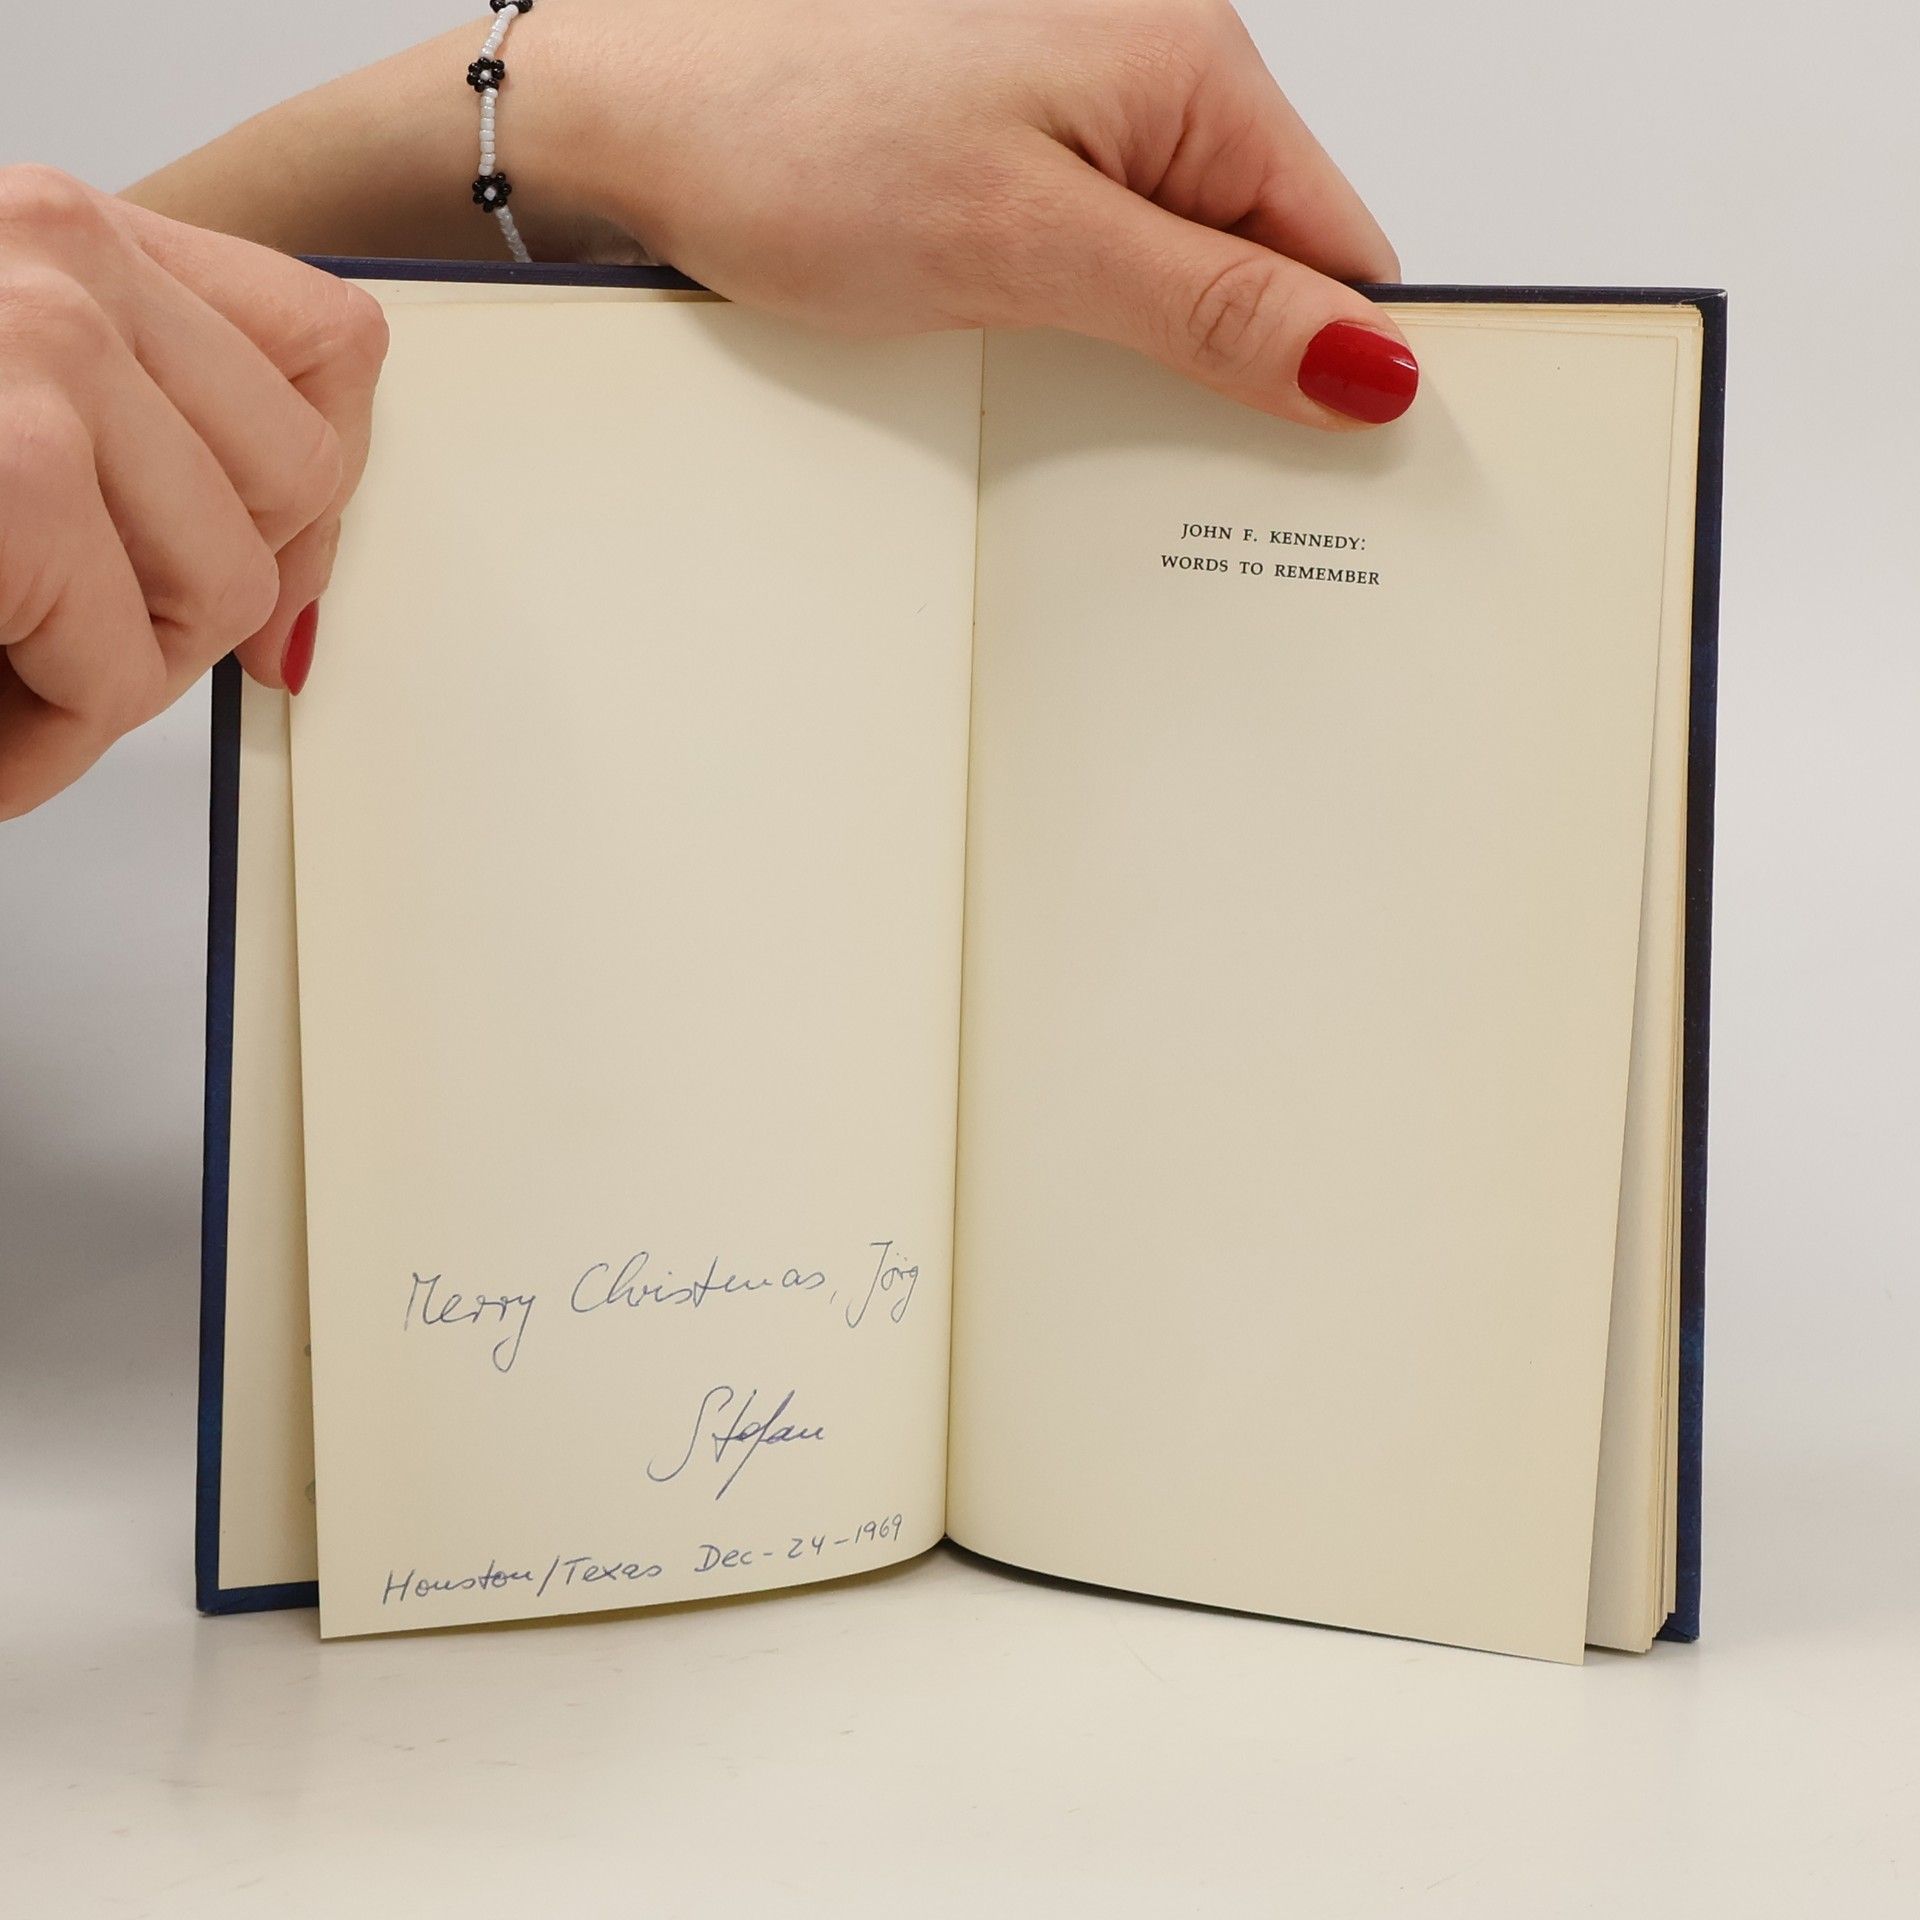 Merry Christmas, Jörg
Stefan
Houston/Texas Dec-24-1969
JOHN F. KENNEDY:
WORDS TO REMEMBER